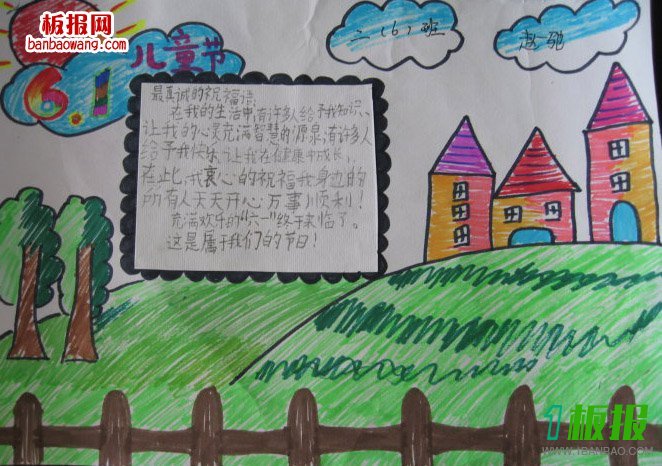 板报网
banbaowang.com
6.1
儿童节
二(6)班
赵弛
最真诚的祝福语:
在我的生活中,有许多人给予我知识、
让我的心灵充满智慧的源泉;有许多人
给予我快乐,让我在健康中成长,
在此,我衷心的祝福我身边的
所有人天天开心万事顺利!
充满欢乐的“六一”终于来临了。
这是属于我们的节日!
1板报
WWW.1BANBAO.COM